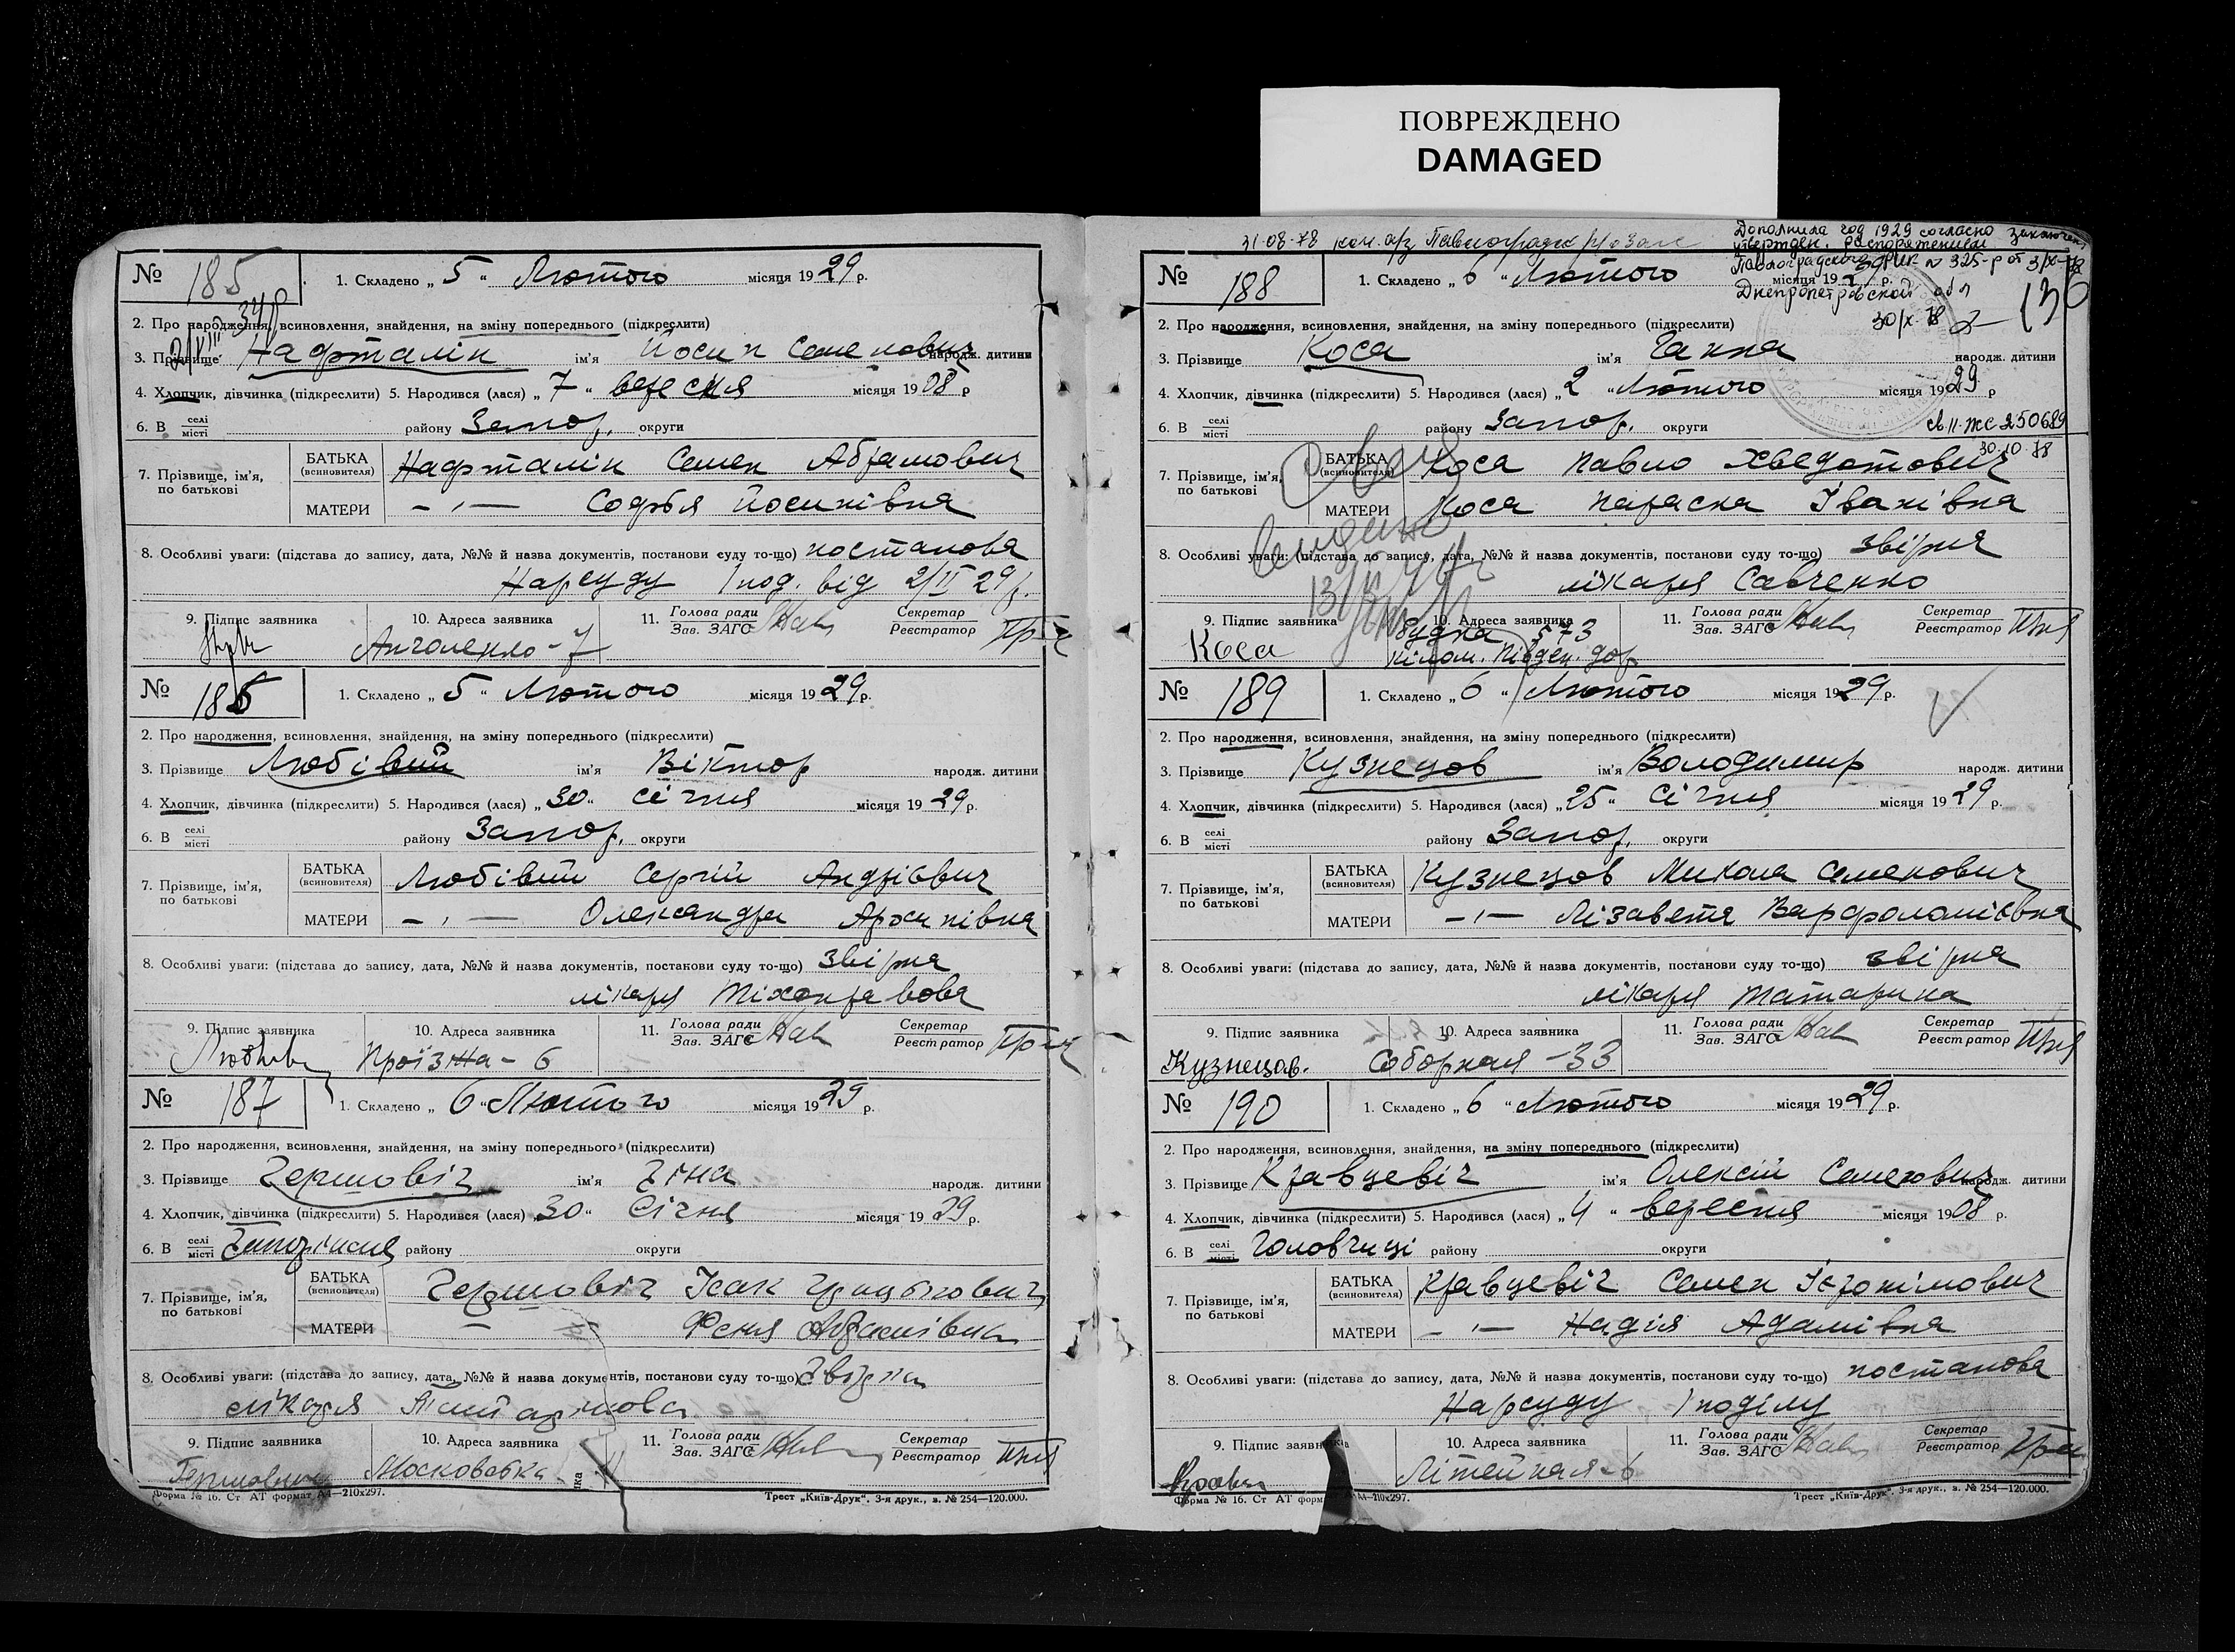 ПОВРЕЖДЕНО
DAMAGED
№ 185
1. Складено „ 5 “ Лютого місяця 1929 р.
2. Про народження, всиновлення, знайдення, на зміну попереднього (підкреслити)
3. Прізвище Нафталін ім'я Йосип Семенович народж. дитини
4. Хлопчик, дівчинка (підкреслити) 5. Народився (лася) „ 7 “ вересня місяця 1908 р
6. В селі місті району Запор. округи
7. Прізвище, ім'я, по батькові
БАТЬКА (всиновителя) Нафталін Семен Абрамович
МАТЕРИ – " – Софья Йосипівна
8. Особливі уваги: (підстава до запису, дата, №№ й назва документів, постанови суду то-що) постанова
Нарсуду 1 под. від 2/II 29 р.
9. Підпис заявника
10. Адреса заявника
11. Голова ради Зав. ЗАГС
Секретар Реєстратор
Анголенко - 7
№ 186
1. Складено „ 5 “ Лютого місяця 1929 р.
2. Про народження, всиновлення, знайдення, на зміну попереднього (підкреслити)
3. Прізвище Любівий ім'я Віктор народж. дитини
4. Хлопчик, дівчинка (підкреслити) 5. Народився (лася) „ 30 “ січня місяця 1929 р.
6. В селі місті району Запор. округи
7. Прізвище, ім'я, по батькові
БАТЬКА (всиновителя) Любівий Сергій Андрієвич
МАТЕРИ – " – Олександра Архипівна
8. Особливі уваги: (підстава до запису, дата, №№ й назва документів, постанови суду то-що) звірня
лікаря Тіхонравова
9. Підпис заявника
10. Адреса заявника
11. Голова ради Зав. ЗАГС
Секретар Реєстратор
Проїзна - 6
№ 187
1. Складено „ 6 “ Лютого місяця 1929 р.
2. Про народження, всиновлення, знайдення, на зміну попереднього (підкреслити)
3. Прізвище Гершовіч ім'я Гіна народж. дитини
4. Хлопчик, дівчинка (підкреслити) 5. Народився (лася) „ 30 “ Січня місяця 1929 р.
6. В селі місті Запоріжжя району округи
7. Прізвище, ім'я, по батькові
БАТЬКА (всиновителя) Гершовіч Ісак
МАТЕРИ – " – Феня
8. Особливі уваги: (підстава до запису, дата, №№ й назва документів, постанови суду то-що) звірня
лікаря
9. Підпис заявника
10. Адреса заявника
11. Голова ради Зав. ЗАГС
Секретар Реєстратор
Московська
Форма № 16. Ст АТ формат А4—210х297.
Трест „Київ-Друк“. З-я друк., з. № 254—120.000.
31-08-78
Дополнила год 1929 согласно заключен.
утвержден. распоряжением
Павлоградского РИК № 325-р от
Днепропетровской обл
30/X-78
№ 188
1. Складено „ 6 “ Лютого місяця 1929 р.
2. Про народження, всиновлення, знайдення, на зміну попереднього (підкреслити)
3. Прізвище Коса ім'я Ганна народж. дитини
4. Хлопчик, дівчинка (підкреслити) 5. Народився (лася) „ 2 “ Лютого місяця 1929 р
6. В селі місті району Запор. округи
св. II-ЖС 250689
30-10-78
7. Прізвище, ім'я, по батькові
БАТЬКА (всиновителя) Коса Павло Хведотович
МАТЕРИ Коса Параска Іванівна
8. Особливі уваги: (підстава до запису, дата, №№ й назва документів, постанови суду то-що) звірня
лікаря Савченко
9. Підпис заявника
10. Адреса заявника
11. Голова ради Зав. ЗАГС
Секретар Реєстратор
Коса
Будка 573
кілом. Півден. дор.
№ 189
1. Складено „ 6 “ Лютого місяця 1929 р.
2. Про народження, всиновлення, знайдення, на зміну попереднього (підкреслити)
3. Прізвище Кузнецов ім'я Володимир народж. дитини
4. Хлопчик, дівчинка (підкреслити) 5. Народився (лася) „ 25 “ січня місяця 1929 р.
6. В селі місті району Запор. округи
7. Прізвище, ім'я, по батькові
БАТЬКА (всиновителя) Кузнецов Микола Семенович
МАТЕРИ – " – Лізавета Варфоломіївна
8. Особливі уваги: (підстава до запису, дата, №№ й назва документів, постанови суду то-що) звірня
лікаря Татарина
9. Підпис заявника
10. Адреса заявника
11. Голова ради Зав. ЗАГС
Секретар Реєстратор
Кузнецов.
Соборная - 33
№ 190
1. Складено „ 6 “ Лютого місяця 1929 р.
2. Про народження, всиновлення, знайдення, на зміну попереднього (підкреслити)
3. Прізвище Кравцевіч ім'я Олексій Семенович народж. дитини
4. Хлопчик, дівчинка (підкреслити) 5. Народився (лася) „ 4 “ вересня місяця 1908 р.
6. В селі місті Головчиці району округи
7. Прізвище, ім'я, по батькові
БАТЬКА (всиновителя) Кравцевіч Семен Ієронімович
МАТЕРИ – " – Надія Адамівна
8. Особливі уваги: (підстава до запису, дата, №№ й назва документів, постанови суду то-що) постанова
Нарсуду 1 поділу
9. Підпис заявника
10. Адреса заявника
11. Голова ради Зав. ЗАГС
Секретар Реєстратор
Літейная - 6
Форма № 16. Ст АТ форм А4—210х297.
Трест „Київ-Друк“. З-я друк., з. № 254—120.000.